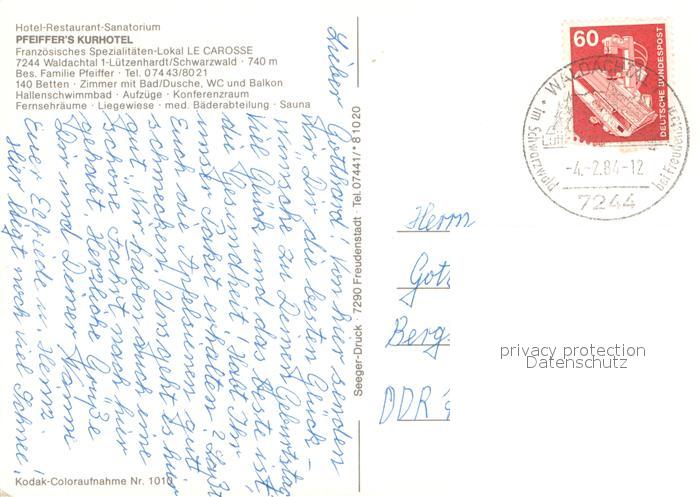 Hotel-Restaurant-Sanatorium
PFEIFFER'S KURHOTEL
Französisches Spezialitäten-Lokal LE CAROSSE
7244 Waldachtal 1-Lützenhardt/Schwarzwald · 740 m
Bes. Familie Pfeiffer · Tel. 07443/8021
140 Betten · Zimmer mit Bad/Dusche, WC und Balkon
Hallenschwimmbad · Aufzüge · Konferenzraum
Fernsehräume · Liegewiese · med. Bäderabteilung · Sauna
Lieber Gotthard! Von hier senden
wir Dir die besten Glück-
wünsche zu Deinem Geburtstag
Viel Glück und das Beste ist,
die Gesundheit! Habt Ihr
unser Paket erhalten? Laßt
Euch die Apfelsinen gut
schmecken. Uns geht es hier
gut. Wir haben auch eine
schöne Fahrt nach hier
gehabt. Herzliche Grüße
Dir und Deiner
Eurer Elfriede u. Heinz
Hier liegt noch viel Schnee!
Kodak-Coloraufnahme Nr. 1010
Seeger-Druck · 7290 Freudenstadt · Tel. 07441/*81020
60
DEUTSCHE BUNDESPOST
WALDACHTAL
im Schwarzwald
bei Freudenstadt
-4.-2.84-12
7244
Herrn
Got
Berg
DDR
privacy protection
Datenschutz